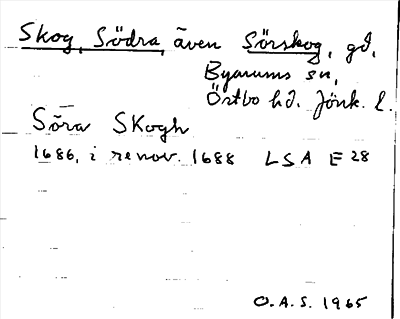 Skog, Södra, även Sörskog, gd,
Byarums sn,
Östbo hd. Jönk. l.
Söra Skogh
1686, i renov. 1688 LSA E 28
O.A.S. 1965